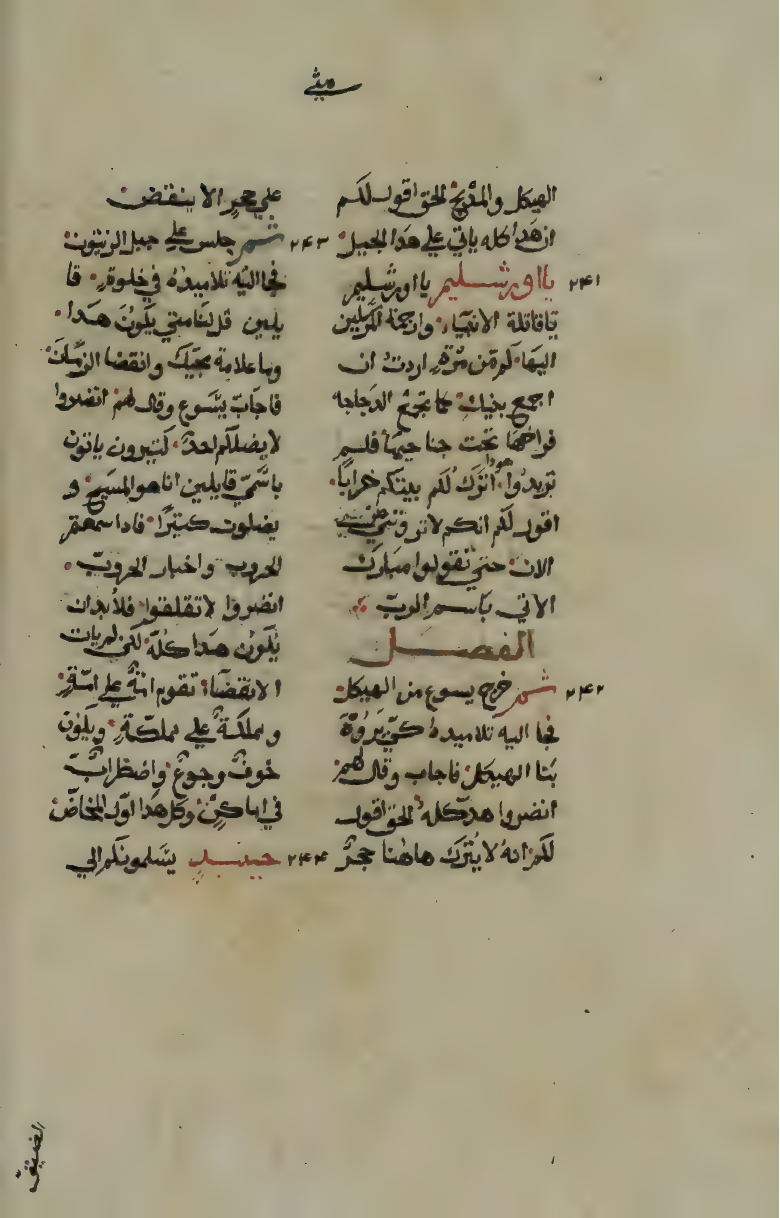 متي
الهيكل والمذبح الحق اقول لكم
ان هدا كله ياتي علي هدا الجيل
٢٤١ يا اورشليم يا اورشليم
يا قاتلة الانبياء وراجمة المرسلين
اليها كم من مرة اردت ان
اجمع بنيك كما تجمع الدجاجه
فراخها تحت جناحيها فلم
تريدوا هودا اترك لكم بيتكم خرابا
اقول لكم انكم لا تروني من
الان حتي تقولوا مبارك
الاتي باسم الرب
الفصل
٢٤٢ ثم خرج يسوع من الهيكل
فجا اليه تلاميده كي يروه
بنا الهيكل فاجاب وقال لهم
انضروا هدا كله الحق اقول
لكم انه لا يترك هاهنا حجر
علي حجر الا ينقض
٢٤٣ ثم جلس علي جبل الزيتون
فجا اليه تلاميده في خلوة قا
يلين قل لنا متي يكون هدا
وما علامة مجيك وانقضا الزمان
فاجاب يسوع وقال لهم انضروا
لا يضلكم احد كتيرون ياتون
باسمي قايلين انا هو المسيح و
يضلون كتيرا فادا سمعتم
الحروب واخبار الحروب
انضروا لا تقلقوا فلا بد ان
يكون هدا كله لكن لم يات
الانقضا تقوم امة علي امة
ومملكة علي مملكة ويكون
خوف وجوع واضطراب
في اماكن وكل هدا اول المخاض
٢٤٤ حينيد يسلمونكم الي
الضيق